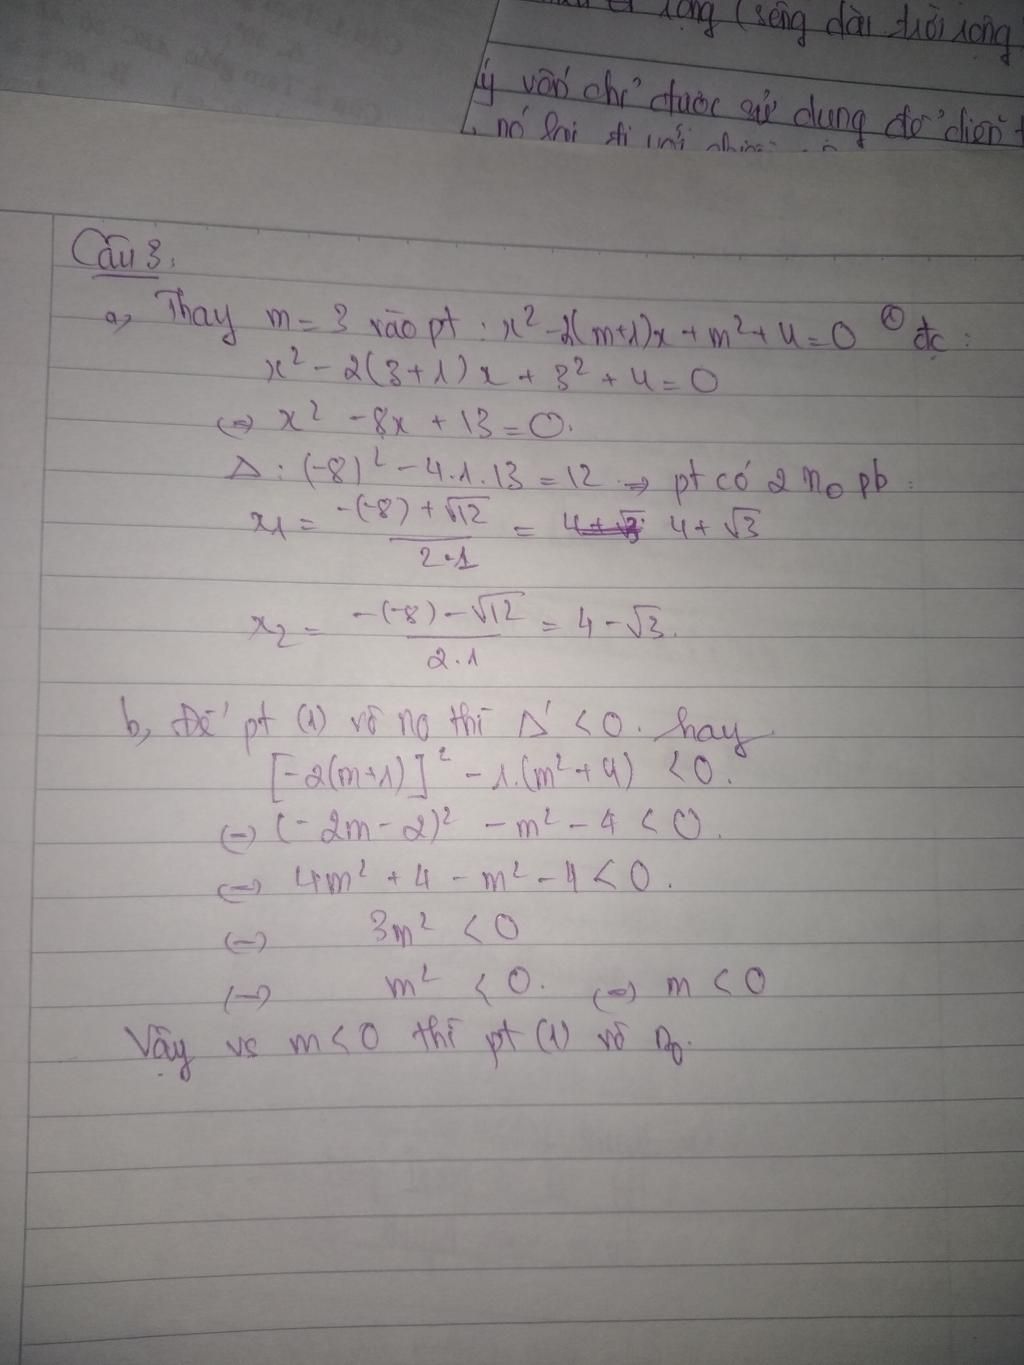 rộng (sông dài trời rộng
lý vốn chỉ được sử dụng để diễn t
nó khi đi với
Câu 3:
a, Thay m = 3 vào pt : x² - 2(m+1)x + m² + 4 = 0 (1) đc :
x² - 2(3+1)x + 3² + 4 = 0
(=) x² - 8x + 13 = 0.
Δ : (-8)² - 4.1.13 = 12 => pt có 2 n₀ pb :
x₁ = (-(-8) + √12)/(2.1) = 4 + √3 4 + √3
x₂ = (-(-8) - √12)/(2.1) = 4 - √3.
b, Để pt (1) vô n₀ thì Δ' < 0. hay
[-2(m+1)]² - 1.(m² + 4) < 0.
(=) (-2m - 2)² - m² - 4 < 0.
(=) 4m² + 4 - m² - 4 < 0.
(=) 3m² < 0
(=) m² < 0. (=) m < 0
Vậy vs m < 0 thì pt (1) vô n₀.